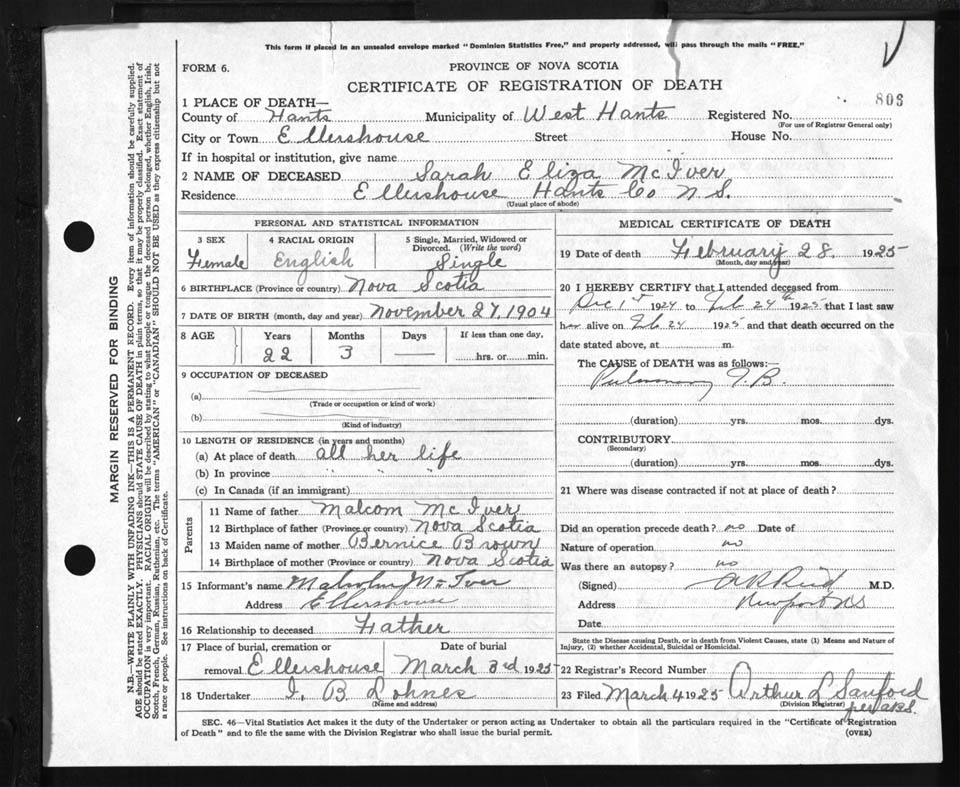 This form if placed in an unsealed envelope marked "Dominion Statistics Free," and properly addressed, will pass through the mails "FREE."
FORM 6.
PROVINCE OF NOVA SCOTIA
CERTIFICATE OF REGISTRATION OF DEATH
1 PLACE OF DEATH—
803
County of Hants Municipality of West Hants Registered No.
(For use of Registrar General only)
City or Town Ellershouse Street House No.
If in hospital or institution, give name
2 NAME OF DECEASED Sarah Eliza McIver
Residence Ellershouse Hants Co N.S.
(Usual place of abode)
PERSONAL AND STATISTICAL INFORMATION
3 SEX
Female
4 RACIAL ORIGIN
English
5 Single, Married, Widowed or
Divorced. (Write the word)
Single
6 BIRTHPLACE (Province or country) Nova Scotia
7 DATE OF BIRTH (month, day and year) November 27, 1904
8 AGE Years Months Days If less than one day,
22 3 — hrs. or min.
9 OCCUPATION OF DECEASED
(a)
(Trade or occupation or kind of work)
(b)
(Kind of industry)
10 LENGTH OF RESIDENCE (in years and months)
(a) At place of death all her life
(b) In province " " "
(c) In Canada (if an immigrant)
Parents
11 Name of father Malcom McIver
12 Birthplace of father (Province or country) Nova Scotia
13 Maiden name of mother Bernice Brown
14 Birthplace of mother (Province or country) Nova Scotia
15 Informant's name Malcolm McIver
Address Ellershouse
16 Relationship to deceased Father
17 Place of burial, cremation or Date of burial
removal Ellershouse March 3rd 1925
18 Undertaker I. B Lohnes
(Name and address)
MEDICAL CERTIFICATE OF DEATH
19 Date of death February 28. 1925
(Month, day and year)
20 I HEREBY CERTIFY that I attended deceased from
Dec 1st 1924 to Feb 24th 1925 that I last saw
her alive on Feb 24 1925 and that death occurred on the
date stated above, at m.
The CAUSE of DEATH was as follows:—
Pulmonary T.B.
(duration) yrs. mos. dys.
CONTRIBUTORY
(Secondary)
(duration) yrs. mos. dys.
21 Where was disease contracted if not at place of death?
Did an operation precede death? no Date of
Nature of operation no
Was there an autopsy? no
(Signed) Reid M.D.
Address Newport NS
Date
State the Disease causing Death, or in death from Violent Causes, state (1) Means and Nature of
Injury, (2) whether Accidental, Suicidal or Homicidal.
22 Registrar's Record Number
23 Filed March 4 1925 Arthur L Sanford
(Division Registrar) per
SEC. 46—Vital Statistics Act makes it the duty of the Undertaker or person acting as Undertaker to obtain all the particulars required in the "Certificate of Registration
of Death" and to file the same with the Division Registrar who shall issue the burial permit. (OVER)
MARGIN RESERVED FOR BINDING
N.B.—WRITE PLAINLY WITH UNFADING INK—THIS IS A PERMANENT RECORD. Every item of information should be carefully supplied.
AGE should be stated EXACTLY. PHYSICIANS should STATE CAUSE OF DEATH in plain terms, so that it may be properly classified. Exact statement of
OCCUPATION is very important. RACIAL ORIGIN will be described by stating to what people or tongue the deceased person belonged, whether English, Irish,
Scotch, French, German, Russian, Ruthenian, etc. The terms "AMERICAN" or "CANADIAN" SHOULD NOT BE USED as they express citizenship but not
a race or people. See instructions on back of Certificate.